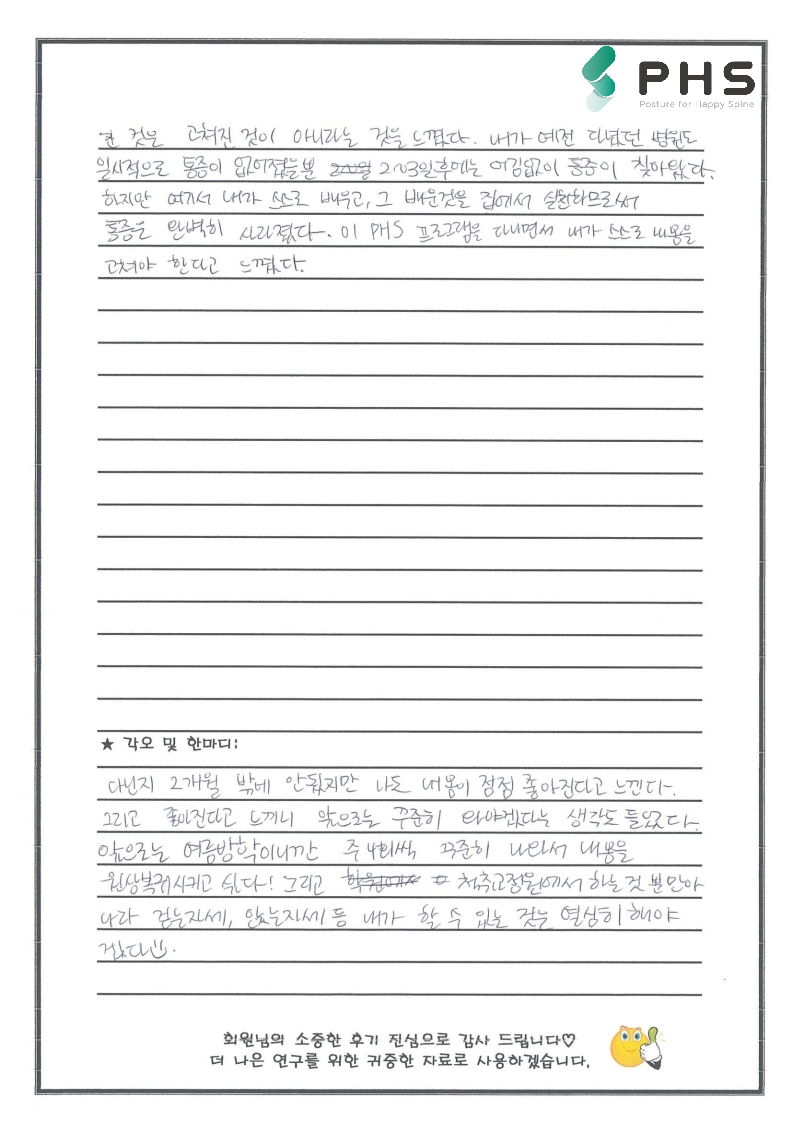 PHS
Posture for Happy Spine
한 것은 고쳐진 것이 아니라는 것을 느꼈다. 내가 예전 다녔던 병원도
일시적으로 통증이 없어졌을뿐 2~3일후에는 어김없이 통증이 찾아왔다.
하지만 여기서 내가 스스로 배우고, 그 배운것을 집에서 실천하므로써
통증은 완벽히 사라졌다. 이 PHS 프로그램을 다니면서 내가 스스로 내몸을
고쳐야 한다고 느꼈다.
★ 각오 및 한마디:
다닌지 2개월 밖에 안됐지만 나도 내몸이 점점 좋아진다고 느낀다.
그리고 좋아진다고 느끼니 앞으로는 꾸준히 와야겠다는 생각도 들었다.
앞으로는 여름방학이니깐 주 4회씩 꾸준히 나와서 내몸을
원상복귀시키고 싶다! 그리고 척추교정원에서 하는 것 뿐만아
니라 걷는자세, 앉는자세 등 내가 할 수 있는 것은 열심히 해야
겠다.
회원님의 소중한 후기 진심으로 감사 드립니다♡
더 나은 연구를 위한 귀중한 자료로 사용하겠습니다.